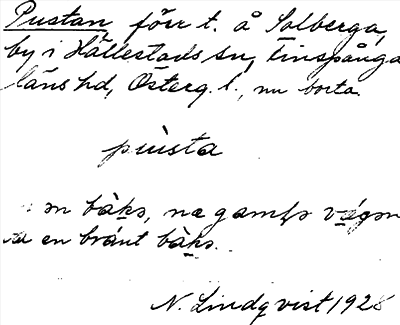 Pustan förr t. å Solberga,
by i Hällestads sn, Finspånga
läns hd, Österg. l., nu borta.
pùsta
bàks, næ gamḷo vǽgən
en bránt bàks.
N. Lindqvist 1928